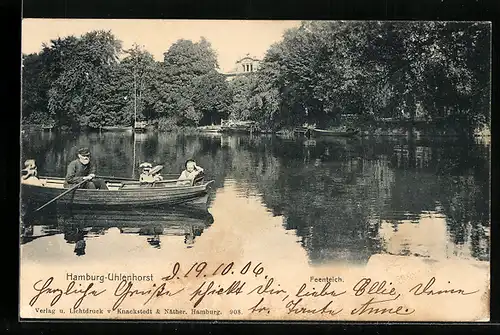 Hamburg-Uhlenhorst
d. 19.10.06
Feenteich.
Herzliche Grüße schickt Dir, liebe Ellie, Deine
tr. Tante Anne.
Verlag u. Lichtdruck v. Knackstedt & Näther, Hamburg. 908.